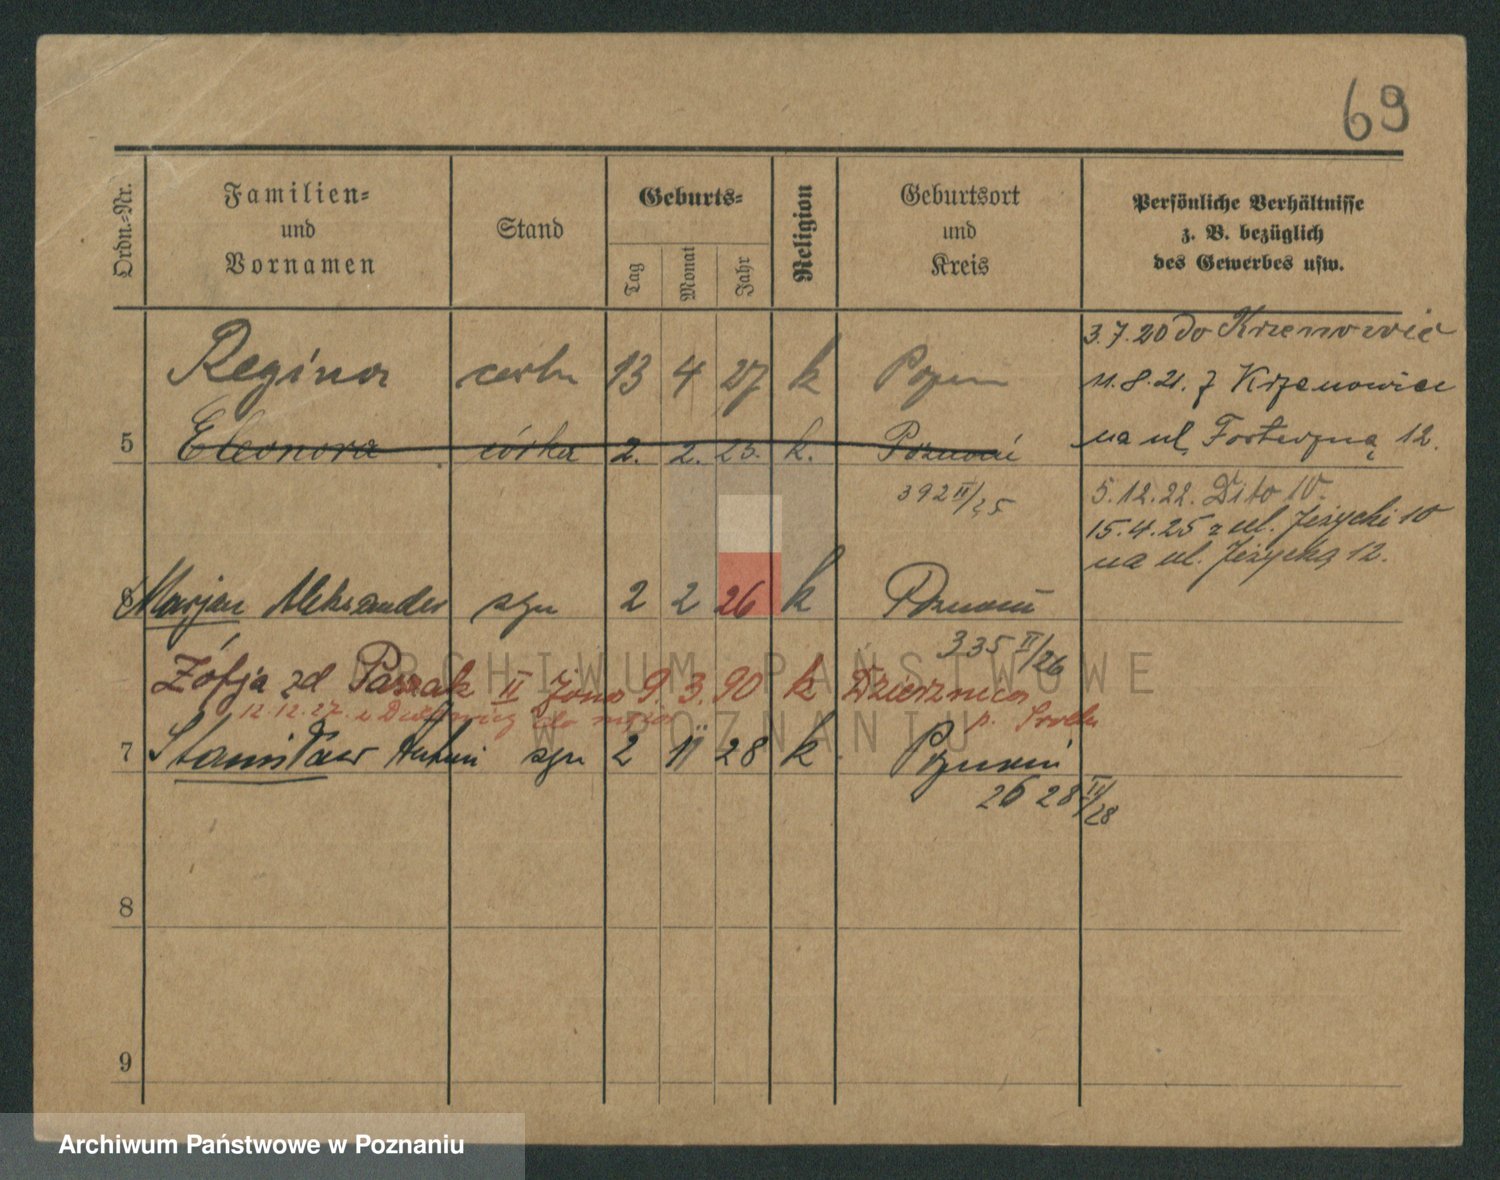 69
Ordn.-Nr.
Familien-
und
Vornamen
Stand
Geburts-
Tag
Monat
Jahr
Religion
Geburtsort
und
Kreis
Persönliche Verhältnisse
z. B. bezüglich
des Gewerbes usw.
Regina 13 4 27 k
3.7.20 do
11.8.21. z Krzanowice
5 Eleonora córka 2. 2. 25. k. Poznań
na ul. 12.
392 II/25
5.12.22. Dito 10.
15.4.25 z ul. Jeżycki 10
na ul. Jeżycką 12.
6 Marjan Aleksander syn 2 2 26 k Poznań
335 II/26
Zofja zd II 9. 3. 90 k
12.12.27. z
7 Stanisław Antoni syn 2 11 28 k Poznań
26 28 II/28
8
9
ARCHIWUM PAŃSTWOWE
W POZNANIU
Archiwum Państwowe w Poznaniu